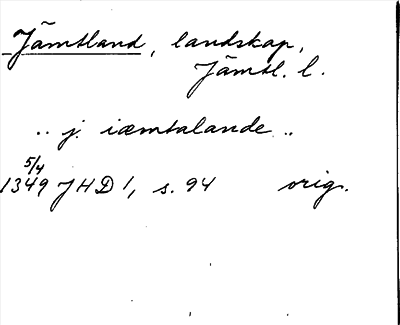 Jämtland, landskap,
Jämtl. l.
.. j. iæmtalande ..
5/4
1349 JHD 1, s. 94 orig.